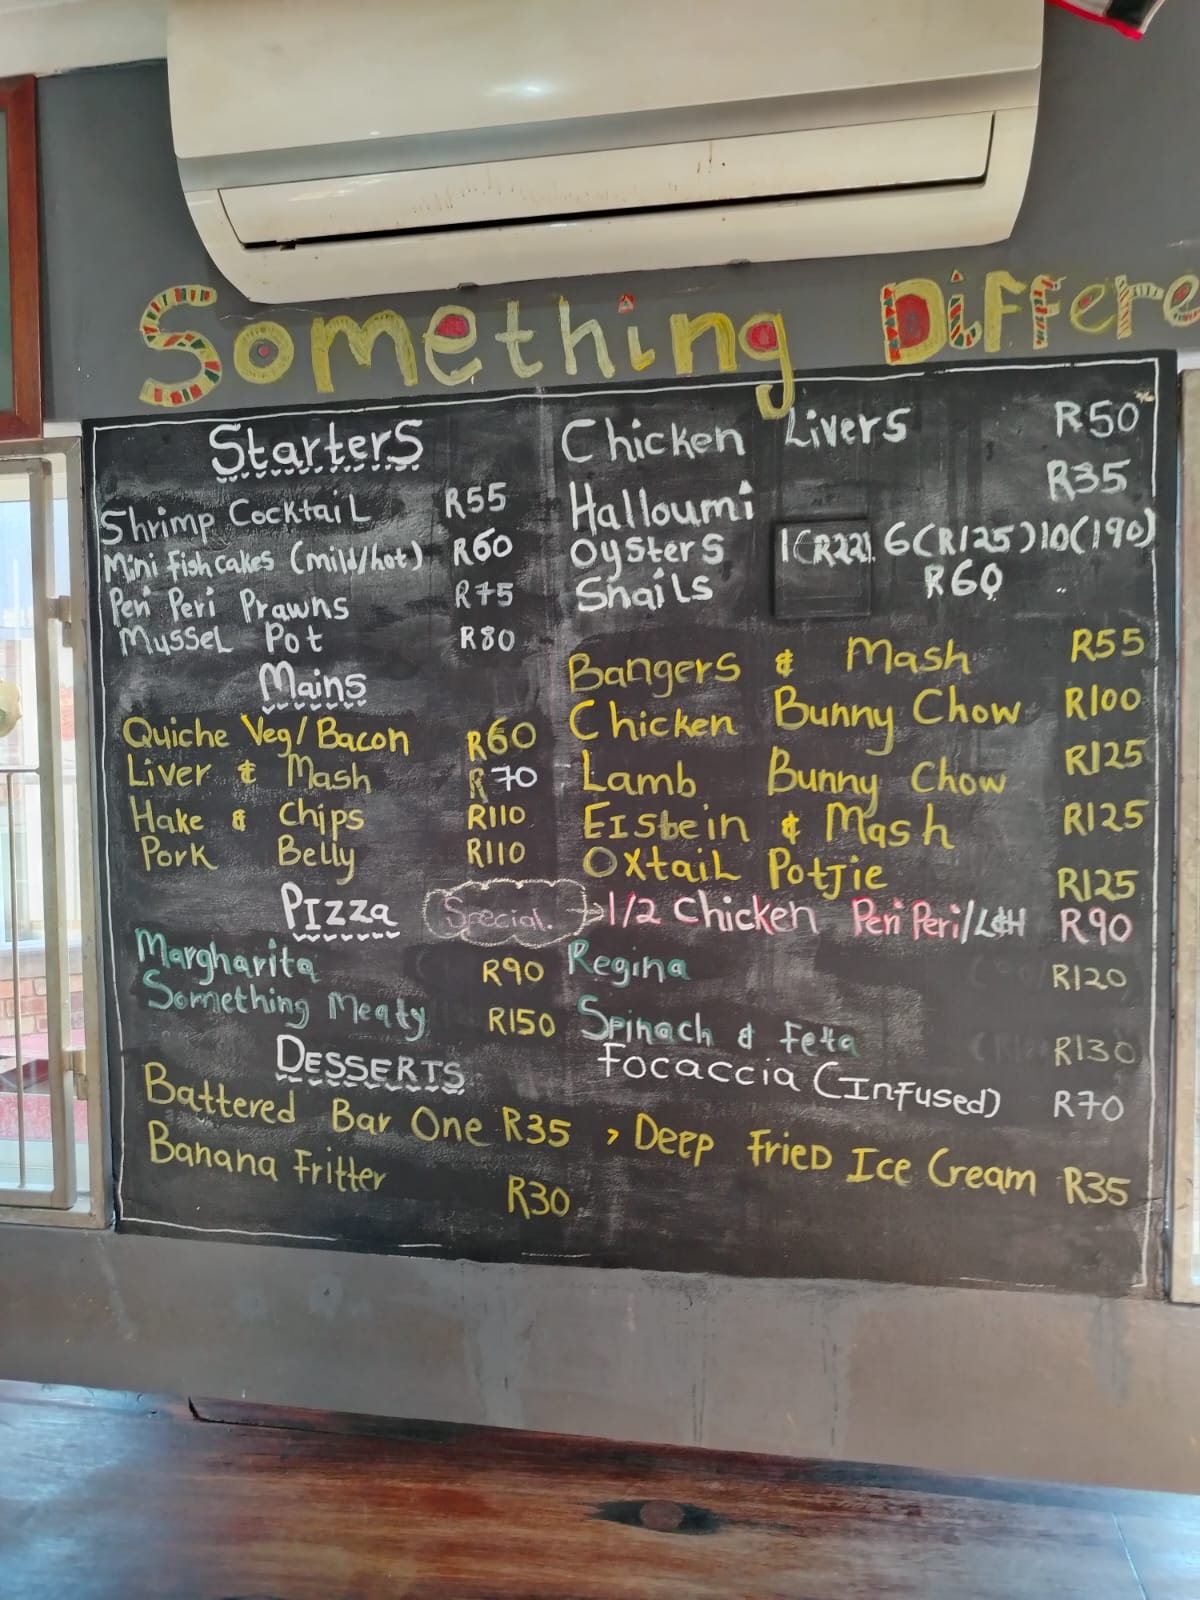 Something Differe
Starters
Shrimp Cocktail R55
Mini fishcakes (mild/hot) R60
Peri Peri Prawns R75
Mussel Pot R80
Chicken Livers R50
Halloumi R35
Oysters 1(R22) 6(R125) 10(190)
Snails R60
Mains
Quiche Veg/Bacon R60
Liver & Mash R70
Hake & Chips R110
Pork Belly R110
Bangers & Mash R55
Chicken Bunny Chow R100
Lamb Bunny Chow R125
Eisbein & Mash R125
Oxtail Potjie R125
Special. → 1/2 Chicken Peri Peri/L&H R90
Pizza
Margharita R90
Something Meaty R150
Regina R120
Spinach & Feta R130
Focaccia (Infused) R70
Desserts
Battered Bar One R35 , Deep Fried Ice Cream R35
Banana Fritter R30